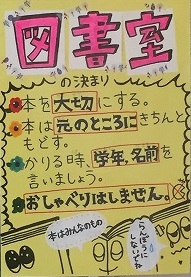 図書室
の決まり
本を大切にする。
本は元のところにきちんと
もどす。
かりる時、学年、名前を
言いましょう。
おしゃべりはしません。
本はみんなのもの
らんぼうに
しないでね